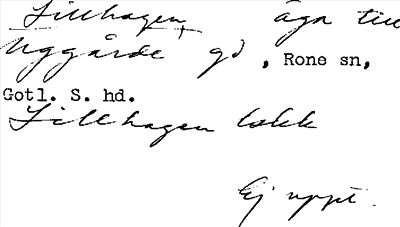 Lillhagen, äga till
Uggårde gd, Rone sn,
Gotl. S. hd.
Lillhagen lokk
Ej uppt.